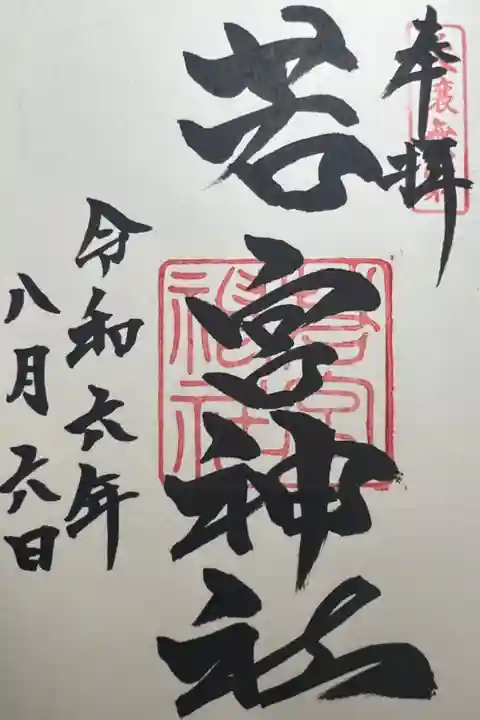 奉拝
若宮神社
令和六年
八月六日